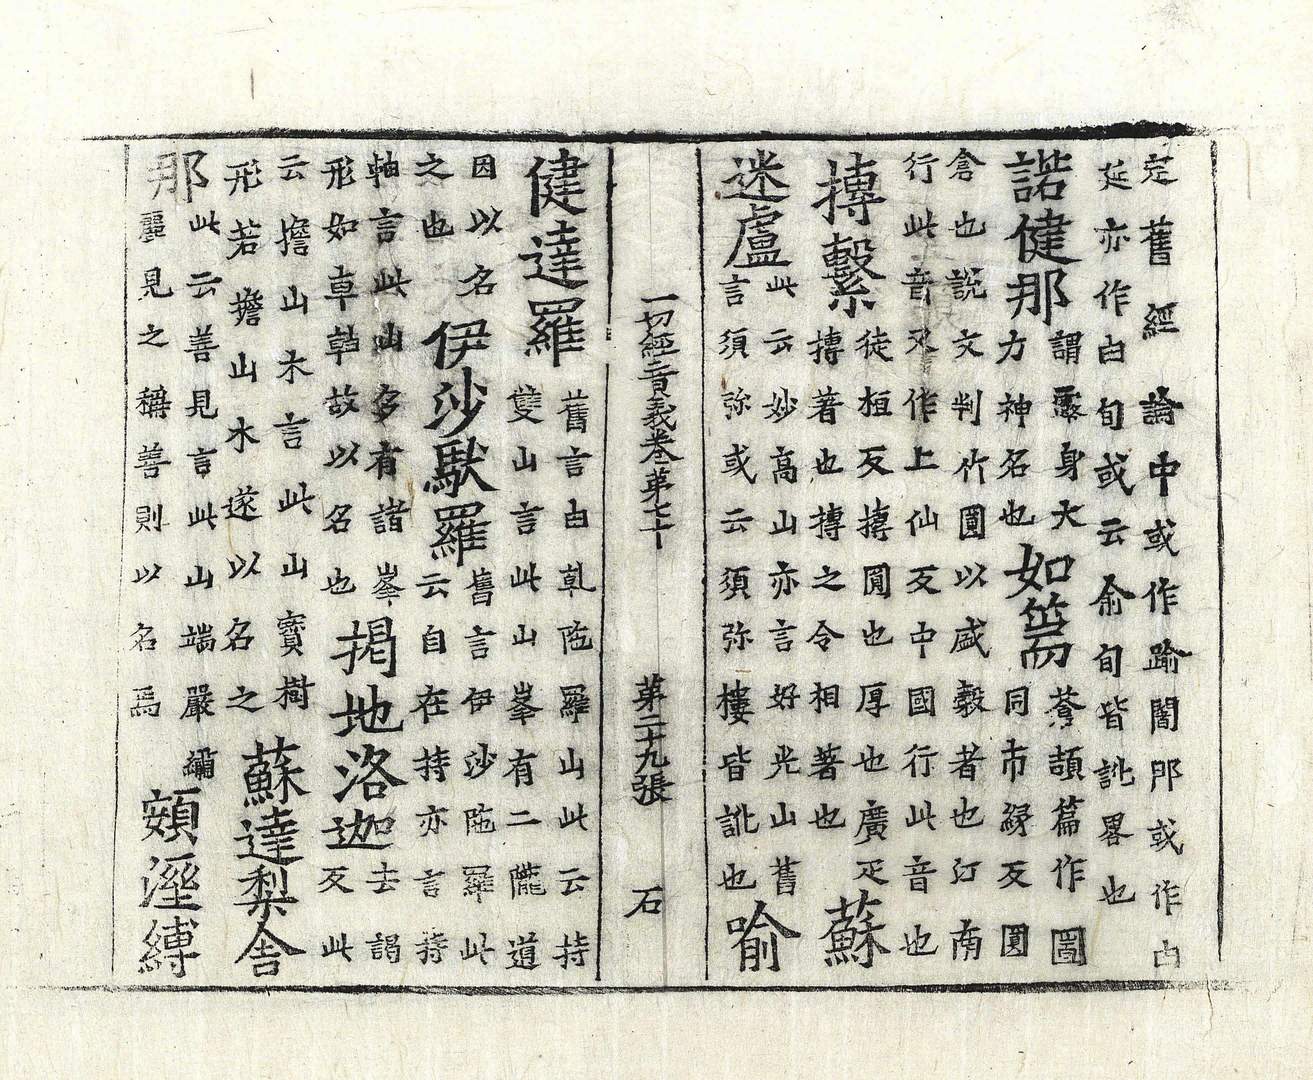 定舊經論中或作踰闍那或作由
延亦作由旬或云俞旬皆訛畧也
諾健那
謂露身大
力神名也
如篅
蒼頡篇作圌
同市緣反圓
倉也說文判竹圓以盛穀者也江南
行此音又作上仙反中國行此音也
摶繫
徒桓反摶圓也厚也廣疋
摶著也摶之令相著也
蘇
迷盧
此云妙高山亦言好光山舊
言須弥或云須弥樓皆訛也
喻
一切經音義卷第七十 第二十九張 石
健達羅
舊言由乹陁羅山此云持
雙山言此山峯有二隴道
因以名
之也
伊沙馱羅
舊言伊沙陁羅此
云自在持亦言持
軸言此山多有諸峯
形如車軸故以名也
掲地洛迦
去謁
反此
云擔山木言此山寶樹
形若擔山木遂以名之
蘇達梨舍
那
此云善見言此山端嚴繡
麗見之稱善則以名焉
頞溼縛